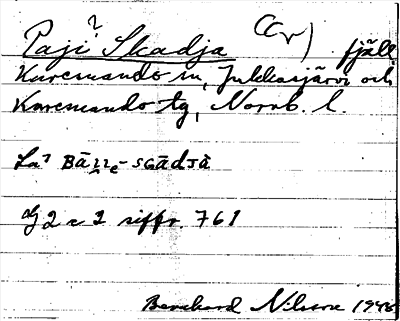 Paji? Skadja (Cv) fjäll,
Karesuando sn, Jukkasjärvi och
Karesuando tg, Norrb. l.
La? Bāi̯i̯e-sGādJà
af 2 a 2 siffr. 761
Bernhard Nilsson 1945